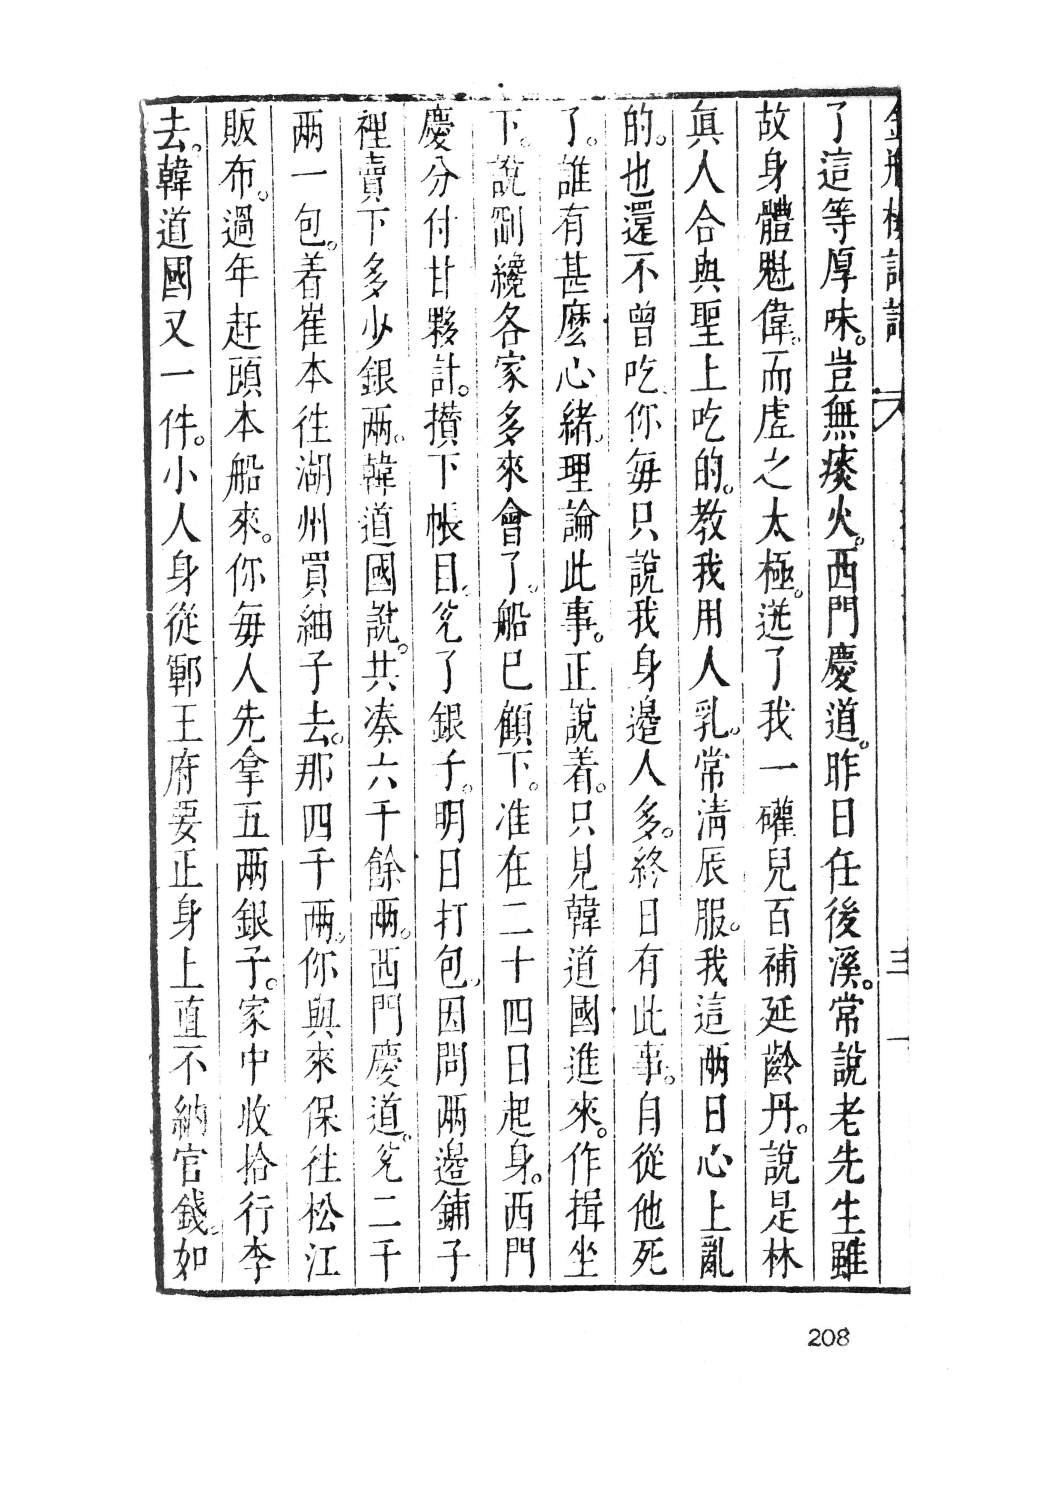 了這等厚味。豈無痰火。西門慶道。昨日任後溪。常說老先生雖
故身體魁偉。而虛之太極。送了我一礶兒百補延齡丹。說是林
眞人合與聖上吃的。教我用人乳。常清辰服。我這兩日心上亂
的。也還不曾吃。你每只說我身邊人多。終日有此事。自從他死
了。誰有甚麼心緒。理論此事。正說着。只見韓道國進來。作揖坐
下。說剛纔各家多來會了。船已顧下。准在二十四日起身。西門
慶分付甘夥計。攢下帳目。兊了銀子。明日打包。因問兩邊鋪子
裡賣下多少銀兩。韓道國說。共凑六千餘兩。西門慶道。兊二千
兩一包。着崔本往湖州買紬子去。那四千兩。你與來保往松江
販布。過年赶頭本船來。你每人先拿五兩銀子。家中收拾行李
去。韓道國又一件。小人身從鄆王府要正身上直不納官錢。如
208